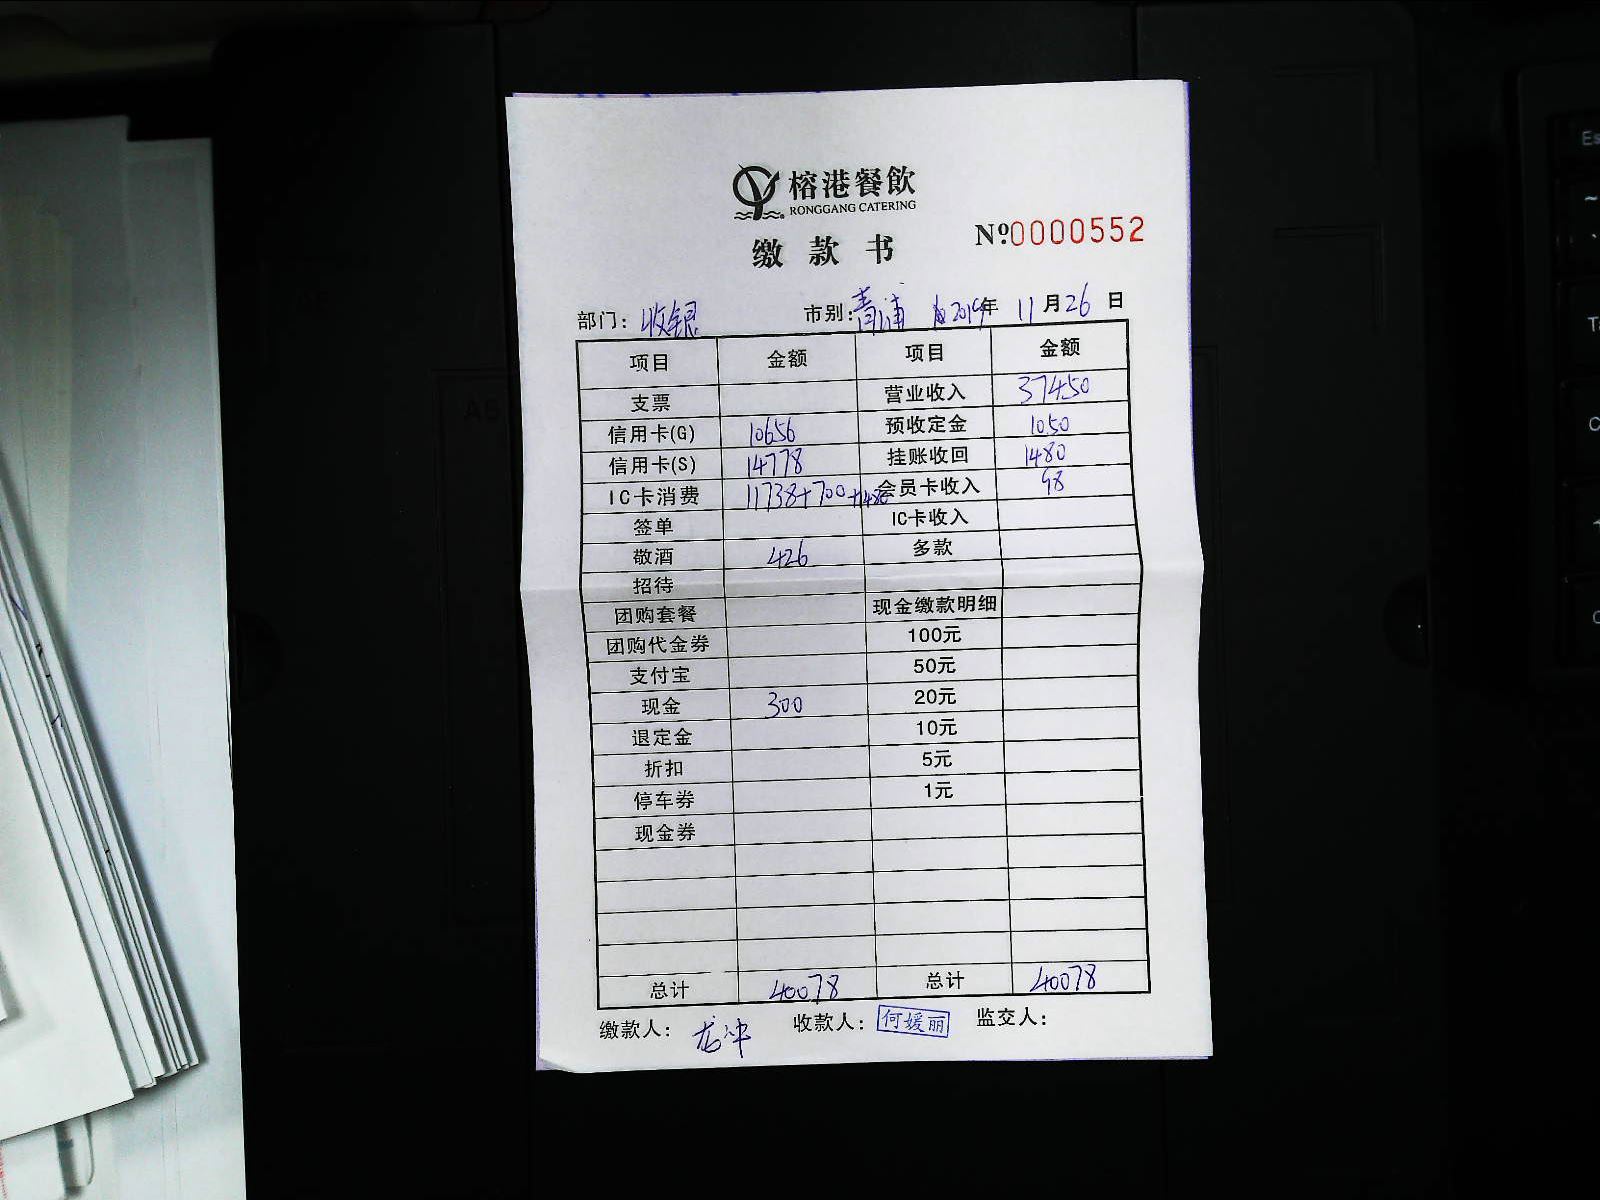 榕港餐飲
RONGGANG CATERING
缴款书
Nº0000552
部门：收银 市别：青浦 2019年 11月26日
项目 金额 项目 金额
支票 营业收入 37450
信用卡(G) 10656 预收定金 1050
信用卡(S) 14778 挂账收回 1480
IC卡消费 11738+700+1480 会员卡收入 98
签单 IC卡收入
敬酒 426 多款
招待
团购套餐 现金缴款明细
团购代金券 100元
支付宝 50元
现金 300 20元
退定金 10元
折扣 5元
停车券 1元
现金券
总计 40078 总计 40078
缴款人：龙冲 收款人：何媛丽 监交人：
Es
~